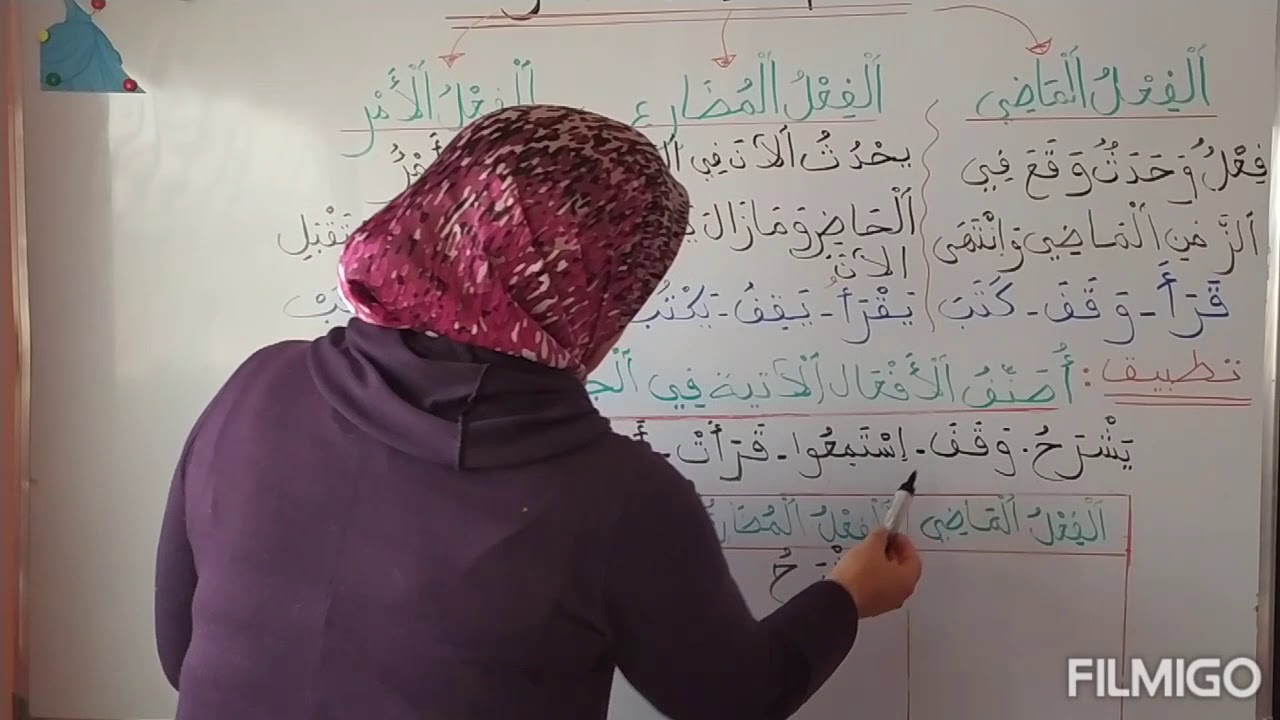 اَلْفِعْلُ الْمَاضِي
فِعْلٌ وَحَدَثٌ وَقَعَ فِي
اَلزَّمَنِ الْمَاضِي وَانْتَهَى
قَرَأَ - وَقَفَ - كَتَبَ
اَلْفِعْلُ الْمُضَارِع
يحْدُثُ اَلْآنَ فِي
اَلْحَاضِرِ وَمَازَالَ
الآنَ
يَقْرَأُ - يَقِفُ - يَكْتُبُ
اَلْفِعْلُ الْأَمْر
تطبيق: أُصَنِّفُ اَلْأَفْعَالَ اَلْآتِيَةَ فِي
يَشْرَحُ - وَقَفَ - اِسْتَمِعُوا - قَرَأَتْ -
اَلْفِعْلُ الْمَاضِي
اَلْفِعْلُ الْمُضَارِ
FILMIGO